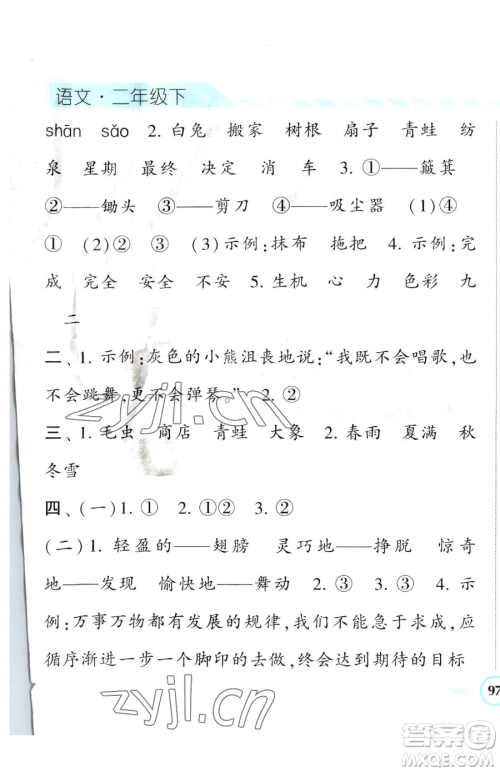 语文·二年级下
shān sǎo 2. 白兔 搬家 树根 扇子 青蛙 纺
泉 星期 最终 决定 消 车 3. ①——簸箕
②——锄头 ③——剪刀 ④——吸尘器 (1)④
① (2)②③ (3)示例:抹布 拖把 4. 示例:完
成 完全 安全 不安 5. 生机 心 力 色彩 九
二
二、1. 示例:灰色的小熊沮丧地说:“我既不会唱歌,也
不会跳舞,更不会弹琴。” 2. ②
三、1. 毛虫 商店 青蛙 大象 2. 春雨 夏满 秋
冬雪
四、(一)1. ① 2. ② 3. ②
(二)1. 轻盈的——翅膀 灵巧地——挣脱 惊奇
地——发现 愉快地——舞动 2. ③ 3. ③ 4. 示
例:万事万物都有发展的规律,我们不能急于求成,应
应循序渐进一步一个脚印的去做,终会达到期待的目标
97
zyjl.cn
zyjl.cn
答案圈
MXQE.COM